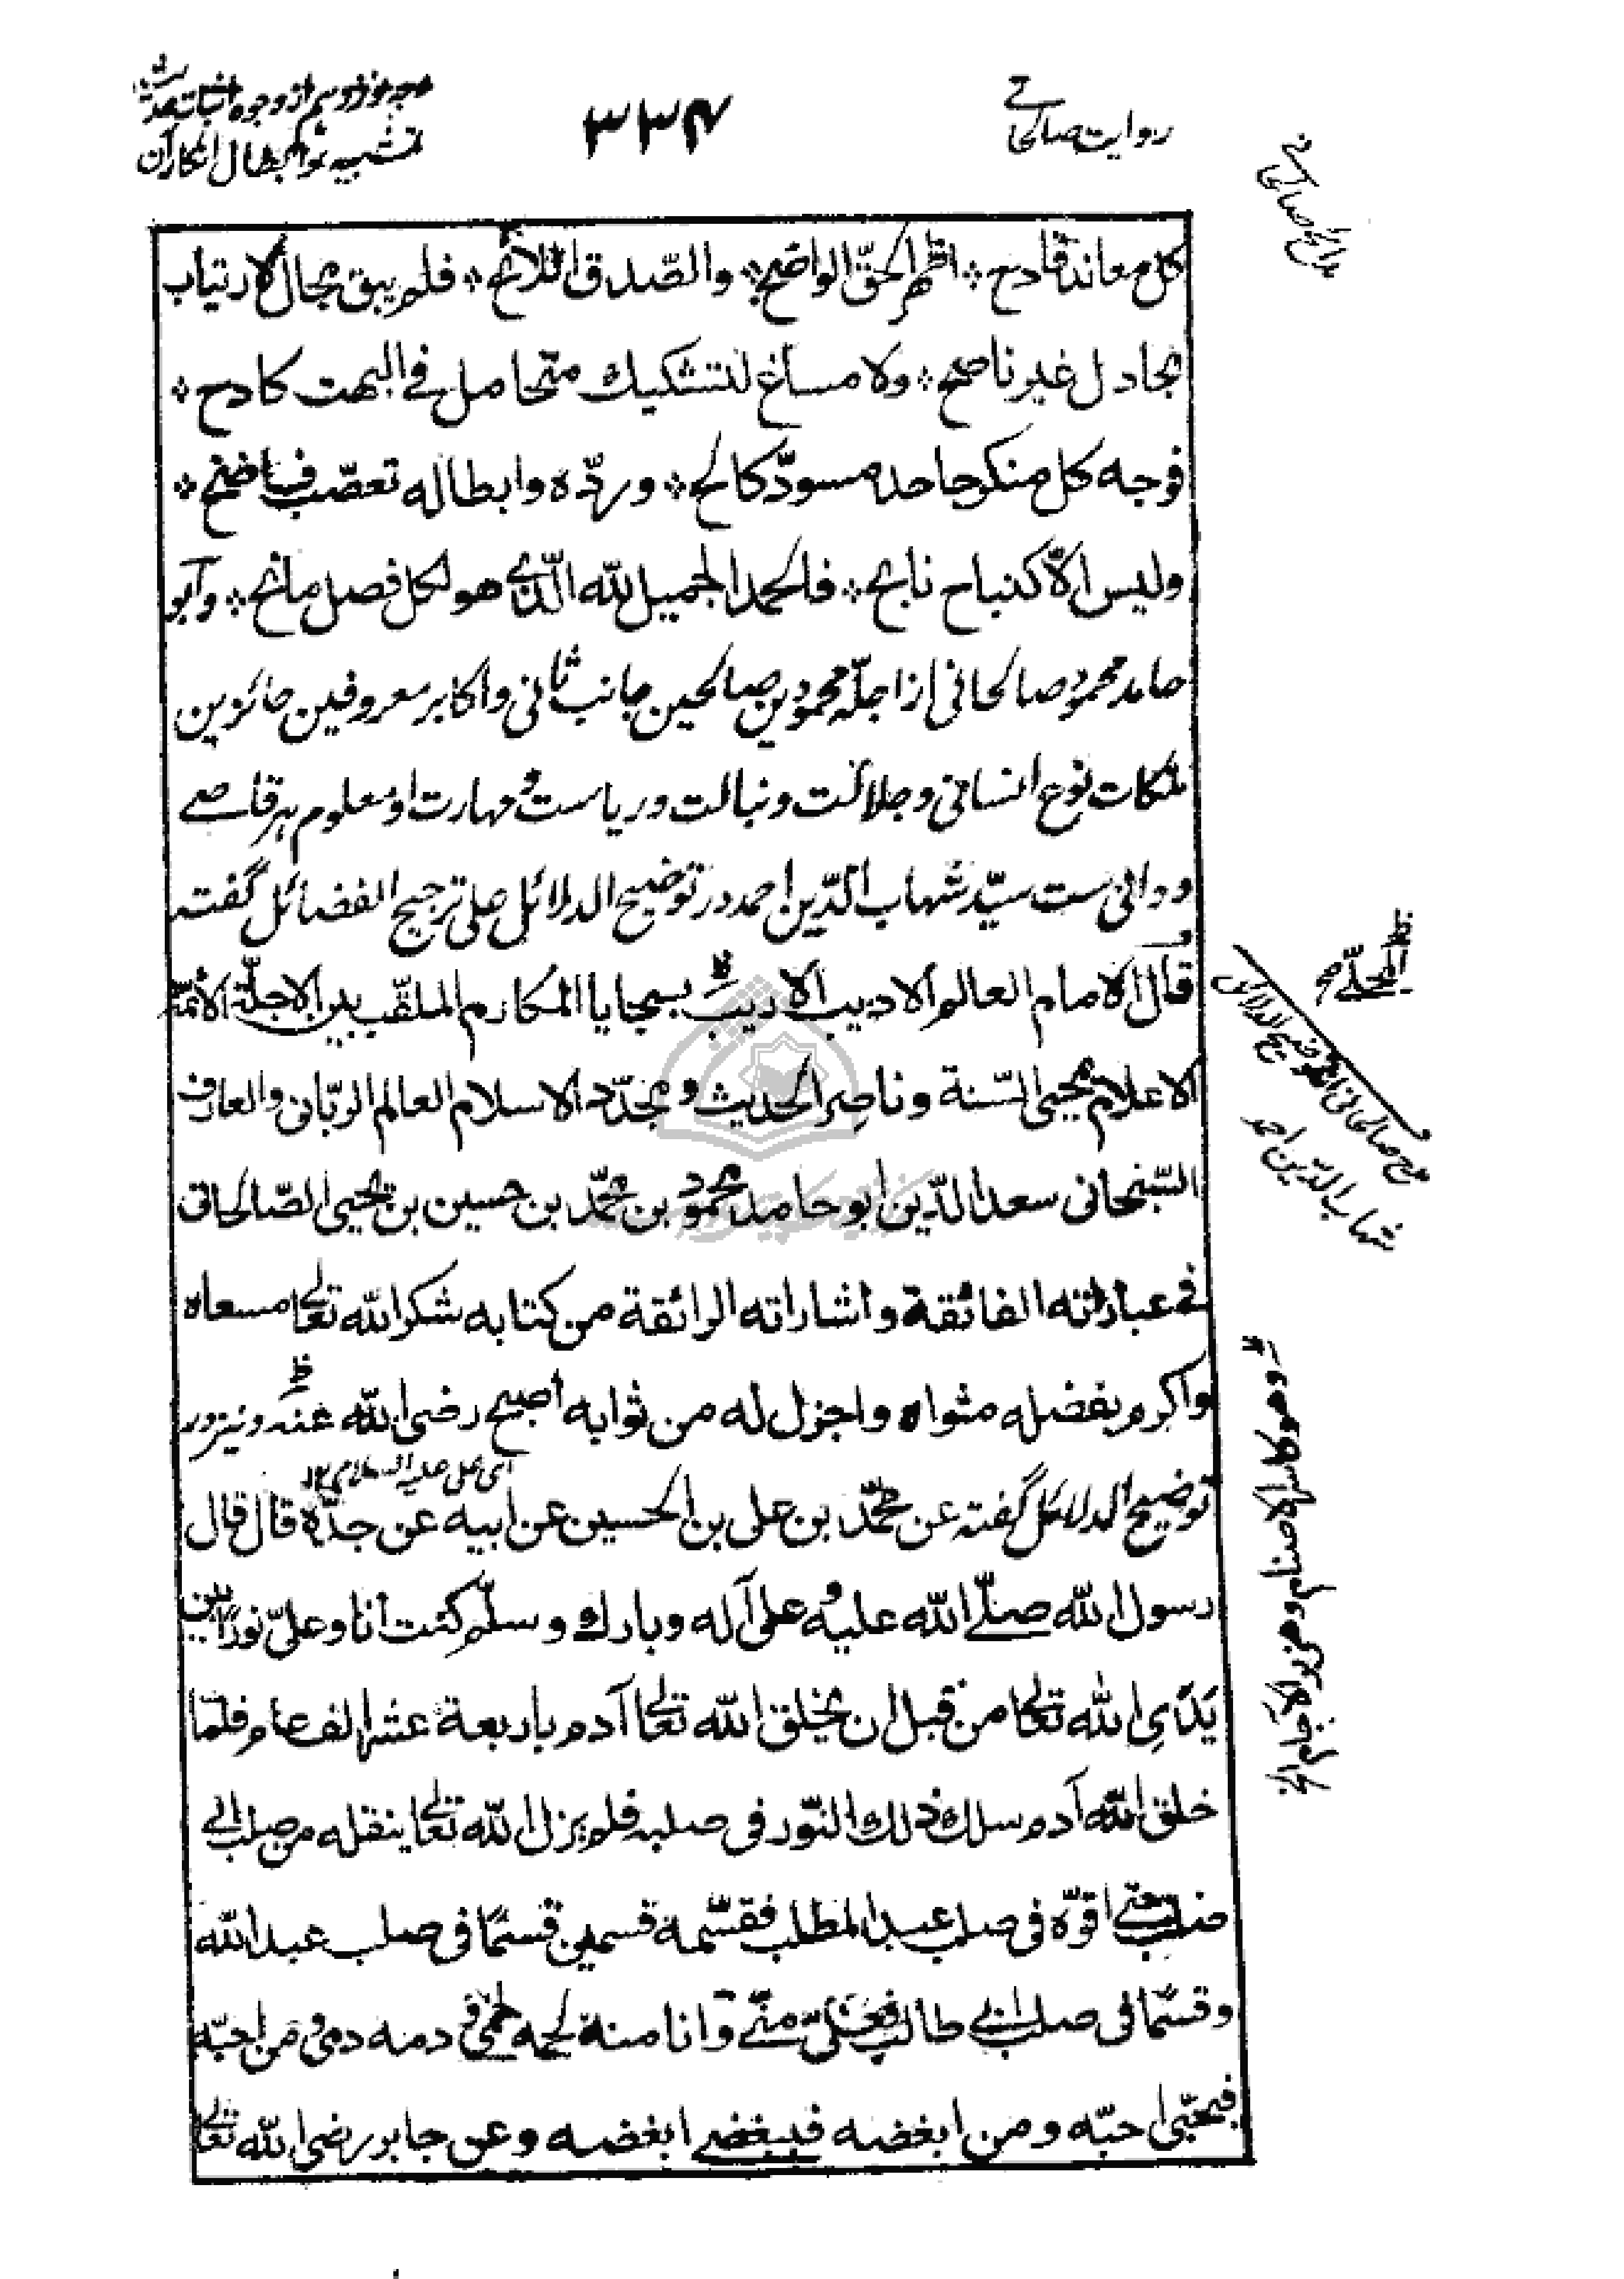 روایت صالحانے
۳۳۴
وجه نوزدهم از وجوه اثبات حدیث
تشبیه و ابطال انکار آن
مدائح صالحانے
كل معاند قادح ∴ اظهر الحقّ الواضح ∴ والصّدق اللائح ∴ فلم يبق مجال لارتياب
مجادل غير ناصح ∴ ولا مساغ لتشكيك متحامل في البهت كادح ∴
فوجه كل منكر جاحد مسودّ كالح ∴ وردّه وابطاله تعصّب فاضح ∴
وليس الاّ كنباح نابح ∴ فالحمد الجميل لله الّذي هو لكل فضل مانح ∴ وابو
حامد محمود صالحانی از اجلّه محمودین صالحین جانب ثانی و اکابر معروفین حائزین
ملکات نوع انسانی و جلالت و نبالت و ریاست و مهارت او معلوم هر قاصے
و دانی ست سیّد شهاب الدّین احمد در توضیح الدلائل علی ترجیح الفضائل گفته
قال الامام العالم الاديب الاريب بسجايا المكارم الملقّب بين الاجلّة الائمّة
الاعلام بمحيى السّنة وناصر الحديث ومجدّد الاسلام العالم الربّانى والعارف
السّبحانى سعد الدّين ابو حامد محمود بن محمّد بن حسين بن يحيى الصّالحانى
في عباراته الفائقة واشاراته الرائقة من كتابه شكر الله تعالى مسعاه
واكرم بفضله مثواه واجزل له من ثوابه اصبح رضى الله عنه ونیز در
اى على عليه السلام
توضیح الدلائل گفته عن محمّد بن على بن الحسين عن ابيه عن جدّه قال قال
رسول الله صلّى الله عليه وعلى آله وبارك وسلّم كنت انا وعلىّ نورًا بين
يَدَىِ الله تعالى من قبل ان يخلق الله تعالى آدم باربعة عشر الف عام فلمّا
خلق الله آدم سلك ذلك النّور فى صلبه فلم يزل الله تعالى ينقله من صلب الى
صلب حتى اقرّه فى صلب عبد المطلب فقسّمه قسمين قسمًا فى صلب عبد الله
وقسمًا فى صلب ابى طالب فعلىّ منّى وانا منه لحمه لحمى ودمه دمى فمن احبّه
فبحبّى احبّه ومن ابغضه فببغضى ابغضه وعن جابر رضى الله تعالى
المحلّی
مدح صالحانی از توضیح الدلائل
شهاب الدّین احمد
وهو كاسر الاصنام وهزبر الآجام الخ